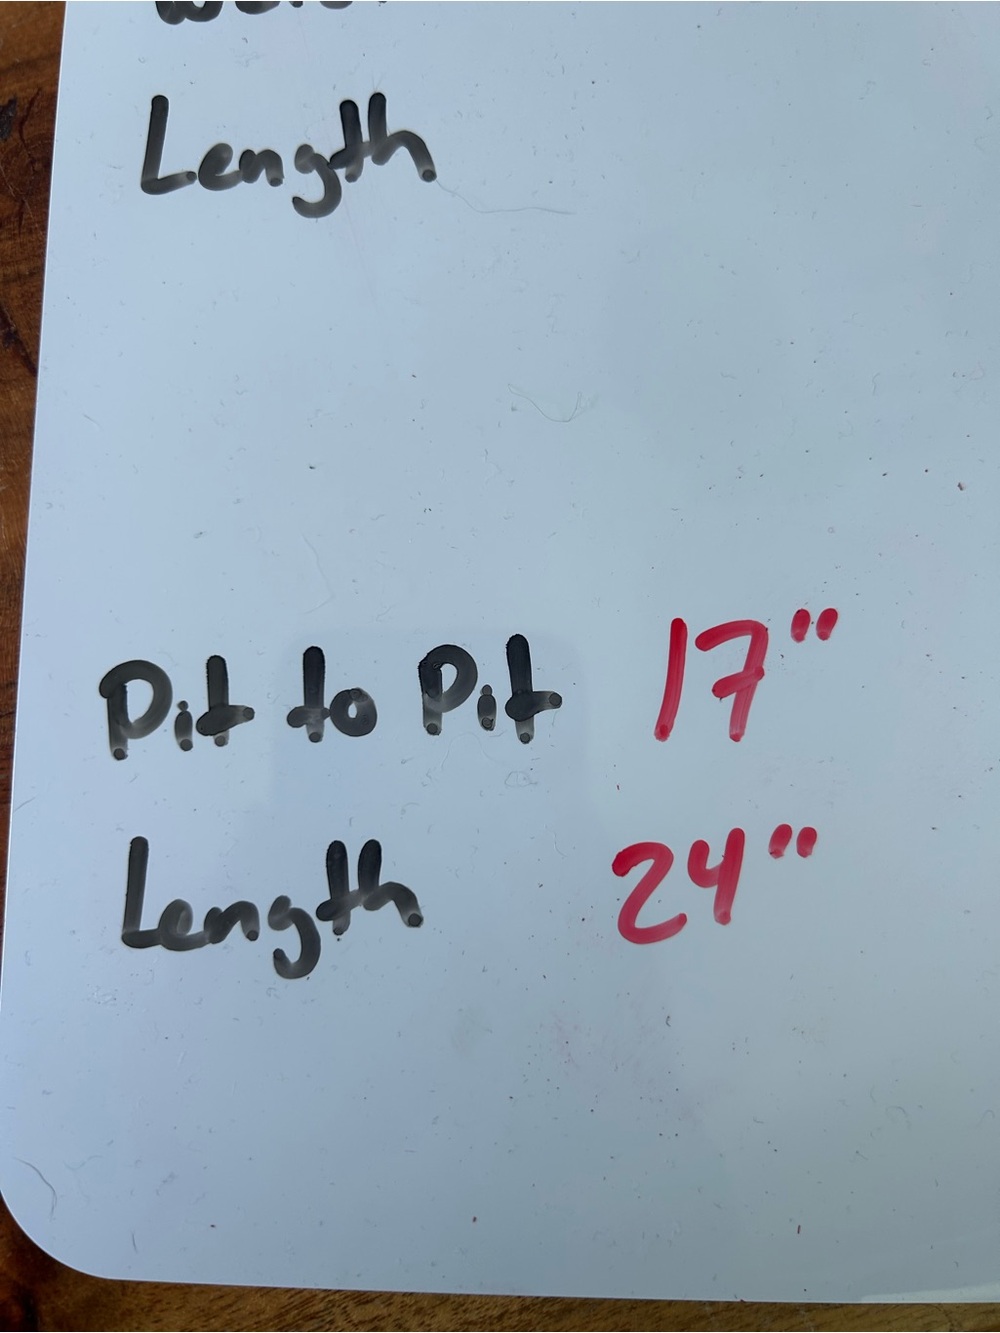 Length
Pit to Pit 17"
Length 24"